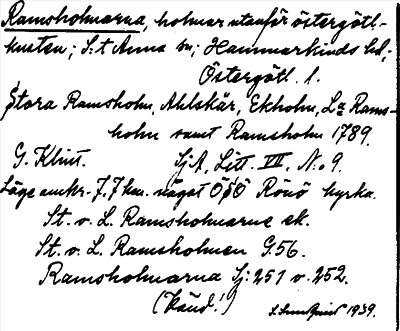 Ramsholmarna, holmar utanför östergötl.-
kusten; S:t Anna sn; Hammarkinds hd;
Östergötl. l.
Stora Ramsholm, Ahlskär, Ekholm, La Rams-
holm samt Ramsholm 1789.
G. Klint. Sj.A, Litt. VII. No 9.
Läge omkr. 7,7 km. något ÖSÖ Rönö kyrka.
St. o. L. Ramsholmarne ek.
St. o. L. Ramsholmen G.56.
Ramsholmarna Sj: 251 o. 252.
(Känd!) 1939.